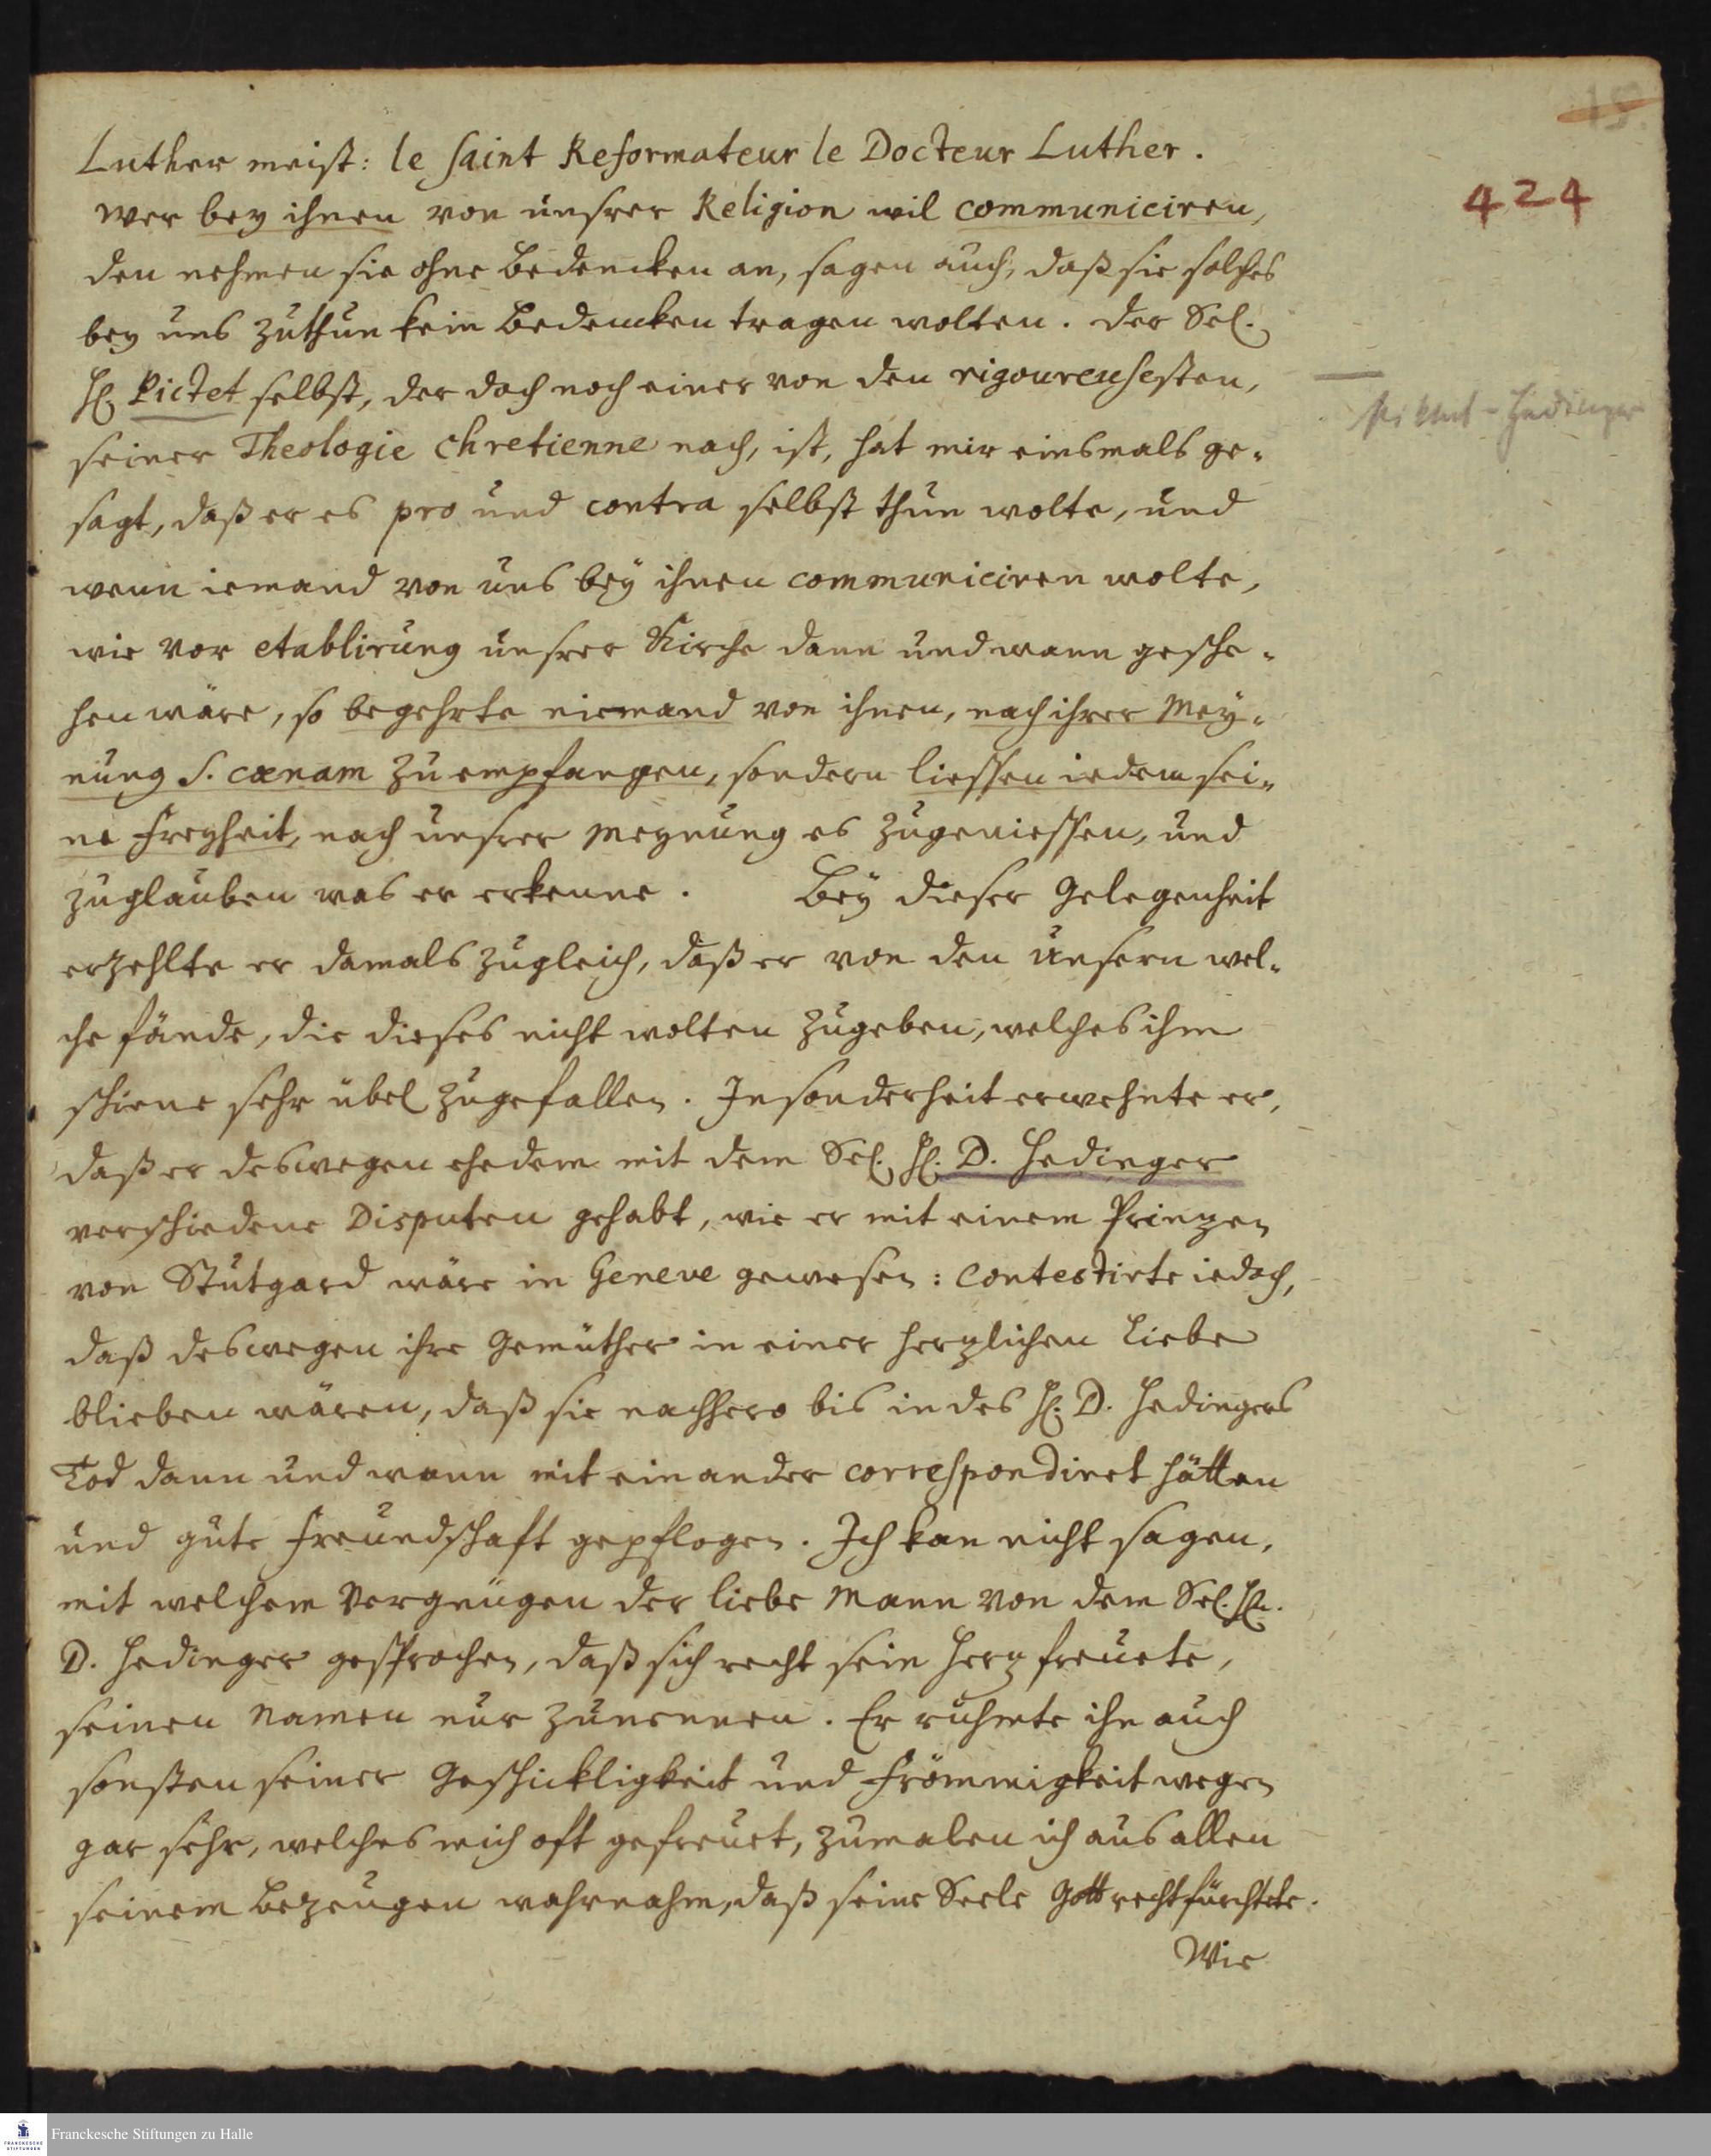 15.
424
Luther meist: le saint Reformateur le Docteur Luther.
Wer bey ihnen von unsrer Religion wil communiciren,
den nehmen sie ohne Bedencken an, sagen auch, daß sie solches
bey uns zuthun kein Bedencken tragen wolten. Der Sel.
H. Pictet selbst, der doch noch einer von den rigoureusesten,
Piktet - Hedinger
seiner Theologie chretienne nach, ist, hat mir einsmals ge-
sagt, daß er es pro und contra selbst thun wolte, und
wenn iemand von uns bey ihnen communiciren wolte,
wie vor etablirung unsrer Kirche dann und wann gesche-
hen wäre, so begehrte niemand von ihnen, nach ihrer Mey-
nung S. cœnam zu empfangen, sondern liessen iedem sei-
ne Freyheit, nach unsrer Meynung es zugeniessen, und
zuglauben was er erkenne. Bey dieser Gelegenheit
erzehlte er damals zugleich, daß er von den Unsern wel-
che fände, die dieses nicht wolten zugeben, welches ihm
schiene sehr übel zugefallen. Insonderheit erwehnte er,
daß er deswegen ehedem mit dem Sel. H. D. Hedinger
verschiedene Disputen gehabt, wie er mit einem Prinzen
von Stutgard wäre in Geneve gewesen: Contestirte iedoch,
daß deswegen ihre Gemüther in einer herzlichen Liebe
blieben wären, daß sie nachhero bis in des H. D. Hedingers
Tod dann und wann mit einander correspondiret hätten
und gute Freundschaft gepflogen. Ich kan nicht sagen,
mit welchem Vergnügen der liebe Mann von dem Sel. Hn.
D. Hedinger gesprochen, daß sich recht sein Herz freuete,
seinen Namen nur zunennen. Er ruhmte ihn auch
sonsten seiner Geschickligkeit und Frömmigkeit wegen
gar sehr, welches mich oft gefreuet, zumalen ich aus allen
seinem Bezeugen wahrnahm, daß seine Seele Gott recht fürchtete.
Wie
FRANCKESCHE STIFTUNGEN
Franckesche Stiftungen zu Halle